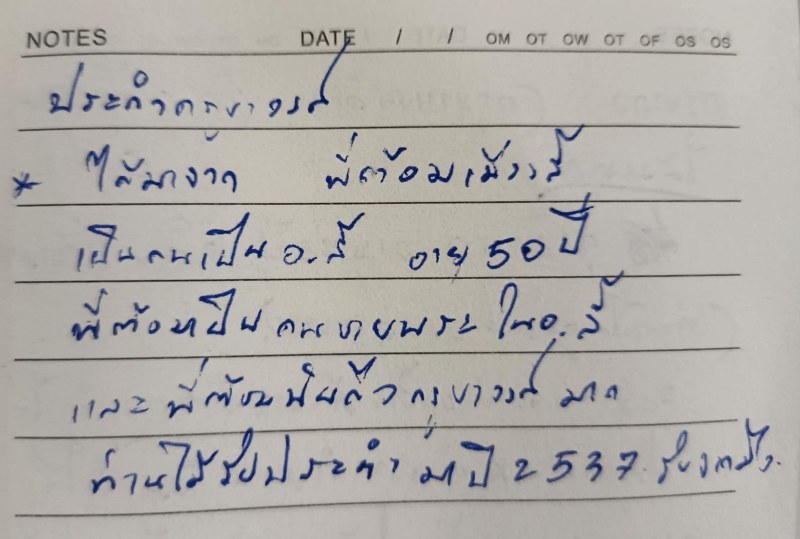 NOTES DATE / / OM OT OW OT OF OS OS
ประคำครูบาวงศ์
* ได้มาจาก พี่ต้อมเมืองลี้
เป็นคนเป็น อ.ลี้ อายุ 50 ปี
พี่ต้อมเป็นคนขายพระ ในอ.ลี้
และ พี่ต้อม ครูบาวงศ์ มาก
ท่านได้รับประคำ มาปี 2537